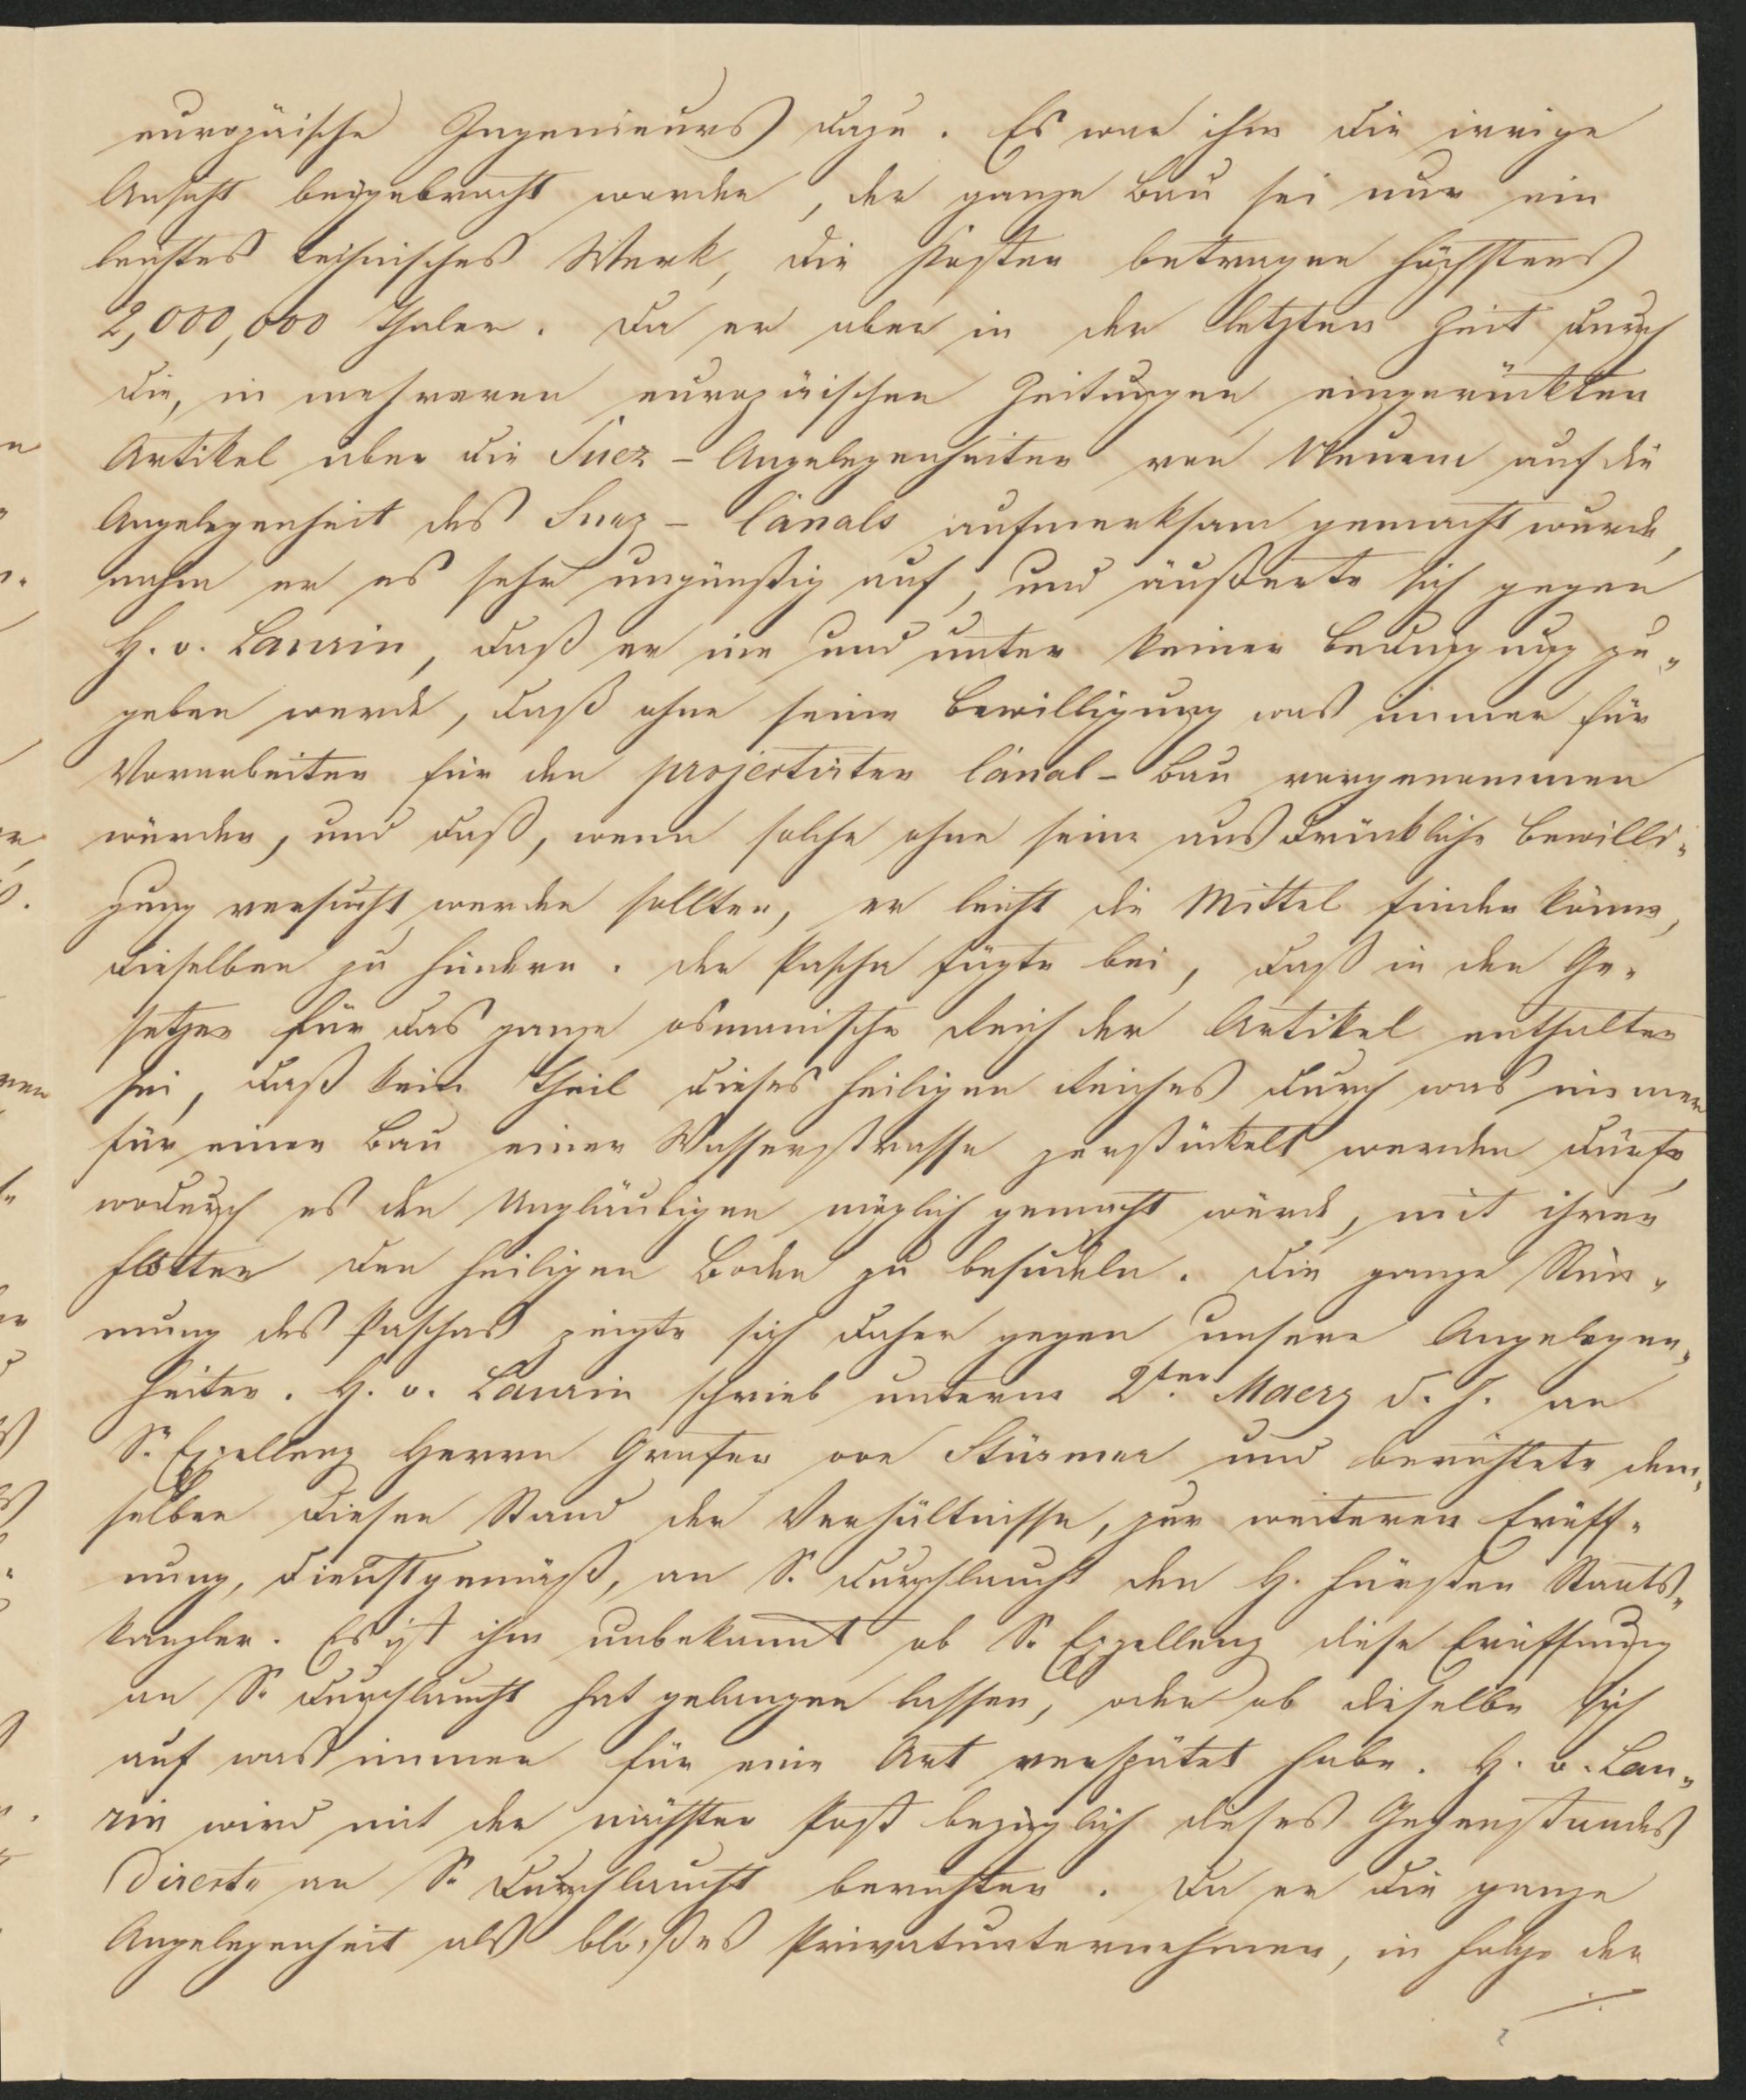 europäische Ingenieurs dazu. Es war ihm die irrige
Ansicht beigebracht worden, der ganze Bau sei nur ein
leichtes technisches Werk, die Kosten betragen höchstens
2,000,000 Thaler. Da er aber in der letzten Zeit durch
die, in mehreren europäischen Zeitungen eingerückten
Artikel über die Suez-Angelegenheiten von Neuem auf die
Angelegenheit des Suez-Canals aufmerksam gemacht wurde,
nahm er es sehr ungünstig auf, und äußerte sich gegen
H. v. Laurin, daß er nie und unter keiner Bedingung zu„
geben werde, daß ohne seine Bewilligung was immer für
Vorarbeiten für den projectirten Canal-Bau vorgenommen
würden, und daß, wenn solche ohne seine ausdrückliche Bewilli„
gung versucht werden sollten, er leicht die Mittel finden könne,
dieselben zu hindern. Der Pascha fügte bei, daß in den Ge„
setzen für das ganze osmanische Reich der Artikel enthalten
sei, daß kein Theil dieses heiligen Reiches durch was immer
für einen Bau einer Wasserstrasse zerstückelt werden dürfe,
wodurch es den Ungläubigen möglich gemacht würde, mit ihren
Flotten den heiligen Boden zu besudeln. Die ganze Stim„
mung des Paschas zeigte sich daher gegen unsere Angelegen„
heiten. H. v. Laurin schrieb unterm 2ten Maerz d. J. an
Sr Exzellenz Herrn Grafen von Stürmer und berichtete dem„
selben diesen Stand der Verhältnisse, zur weiteren Eröff„
nung, dienstgemäß, an S. Durchlaucht den H. Fürsten Staats„
kanzler. Es ist ihm unbekannt ob S. Exzellenz diese Eröffnung
an S. Durchlaucht hat gelangen lassen, oder ob dieselbe sich
auf was immer für eine Art verspätet habe. H. v. Lau„
rin wird mit der nächsten Post bezüglich dieses Gegenstandes
directe an S. Durchlaucht berichten. Da er die ganze
Angelegenheit als bloßes Privatunternehmen, in Folge der
./.